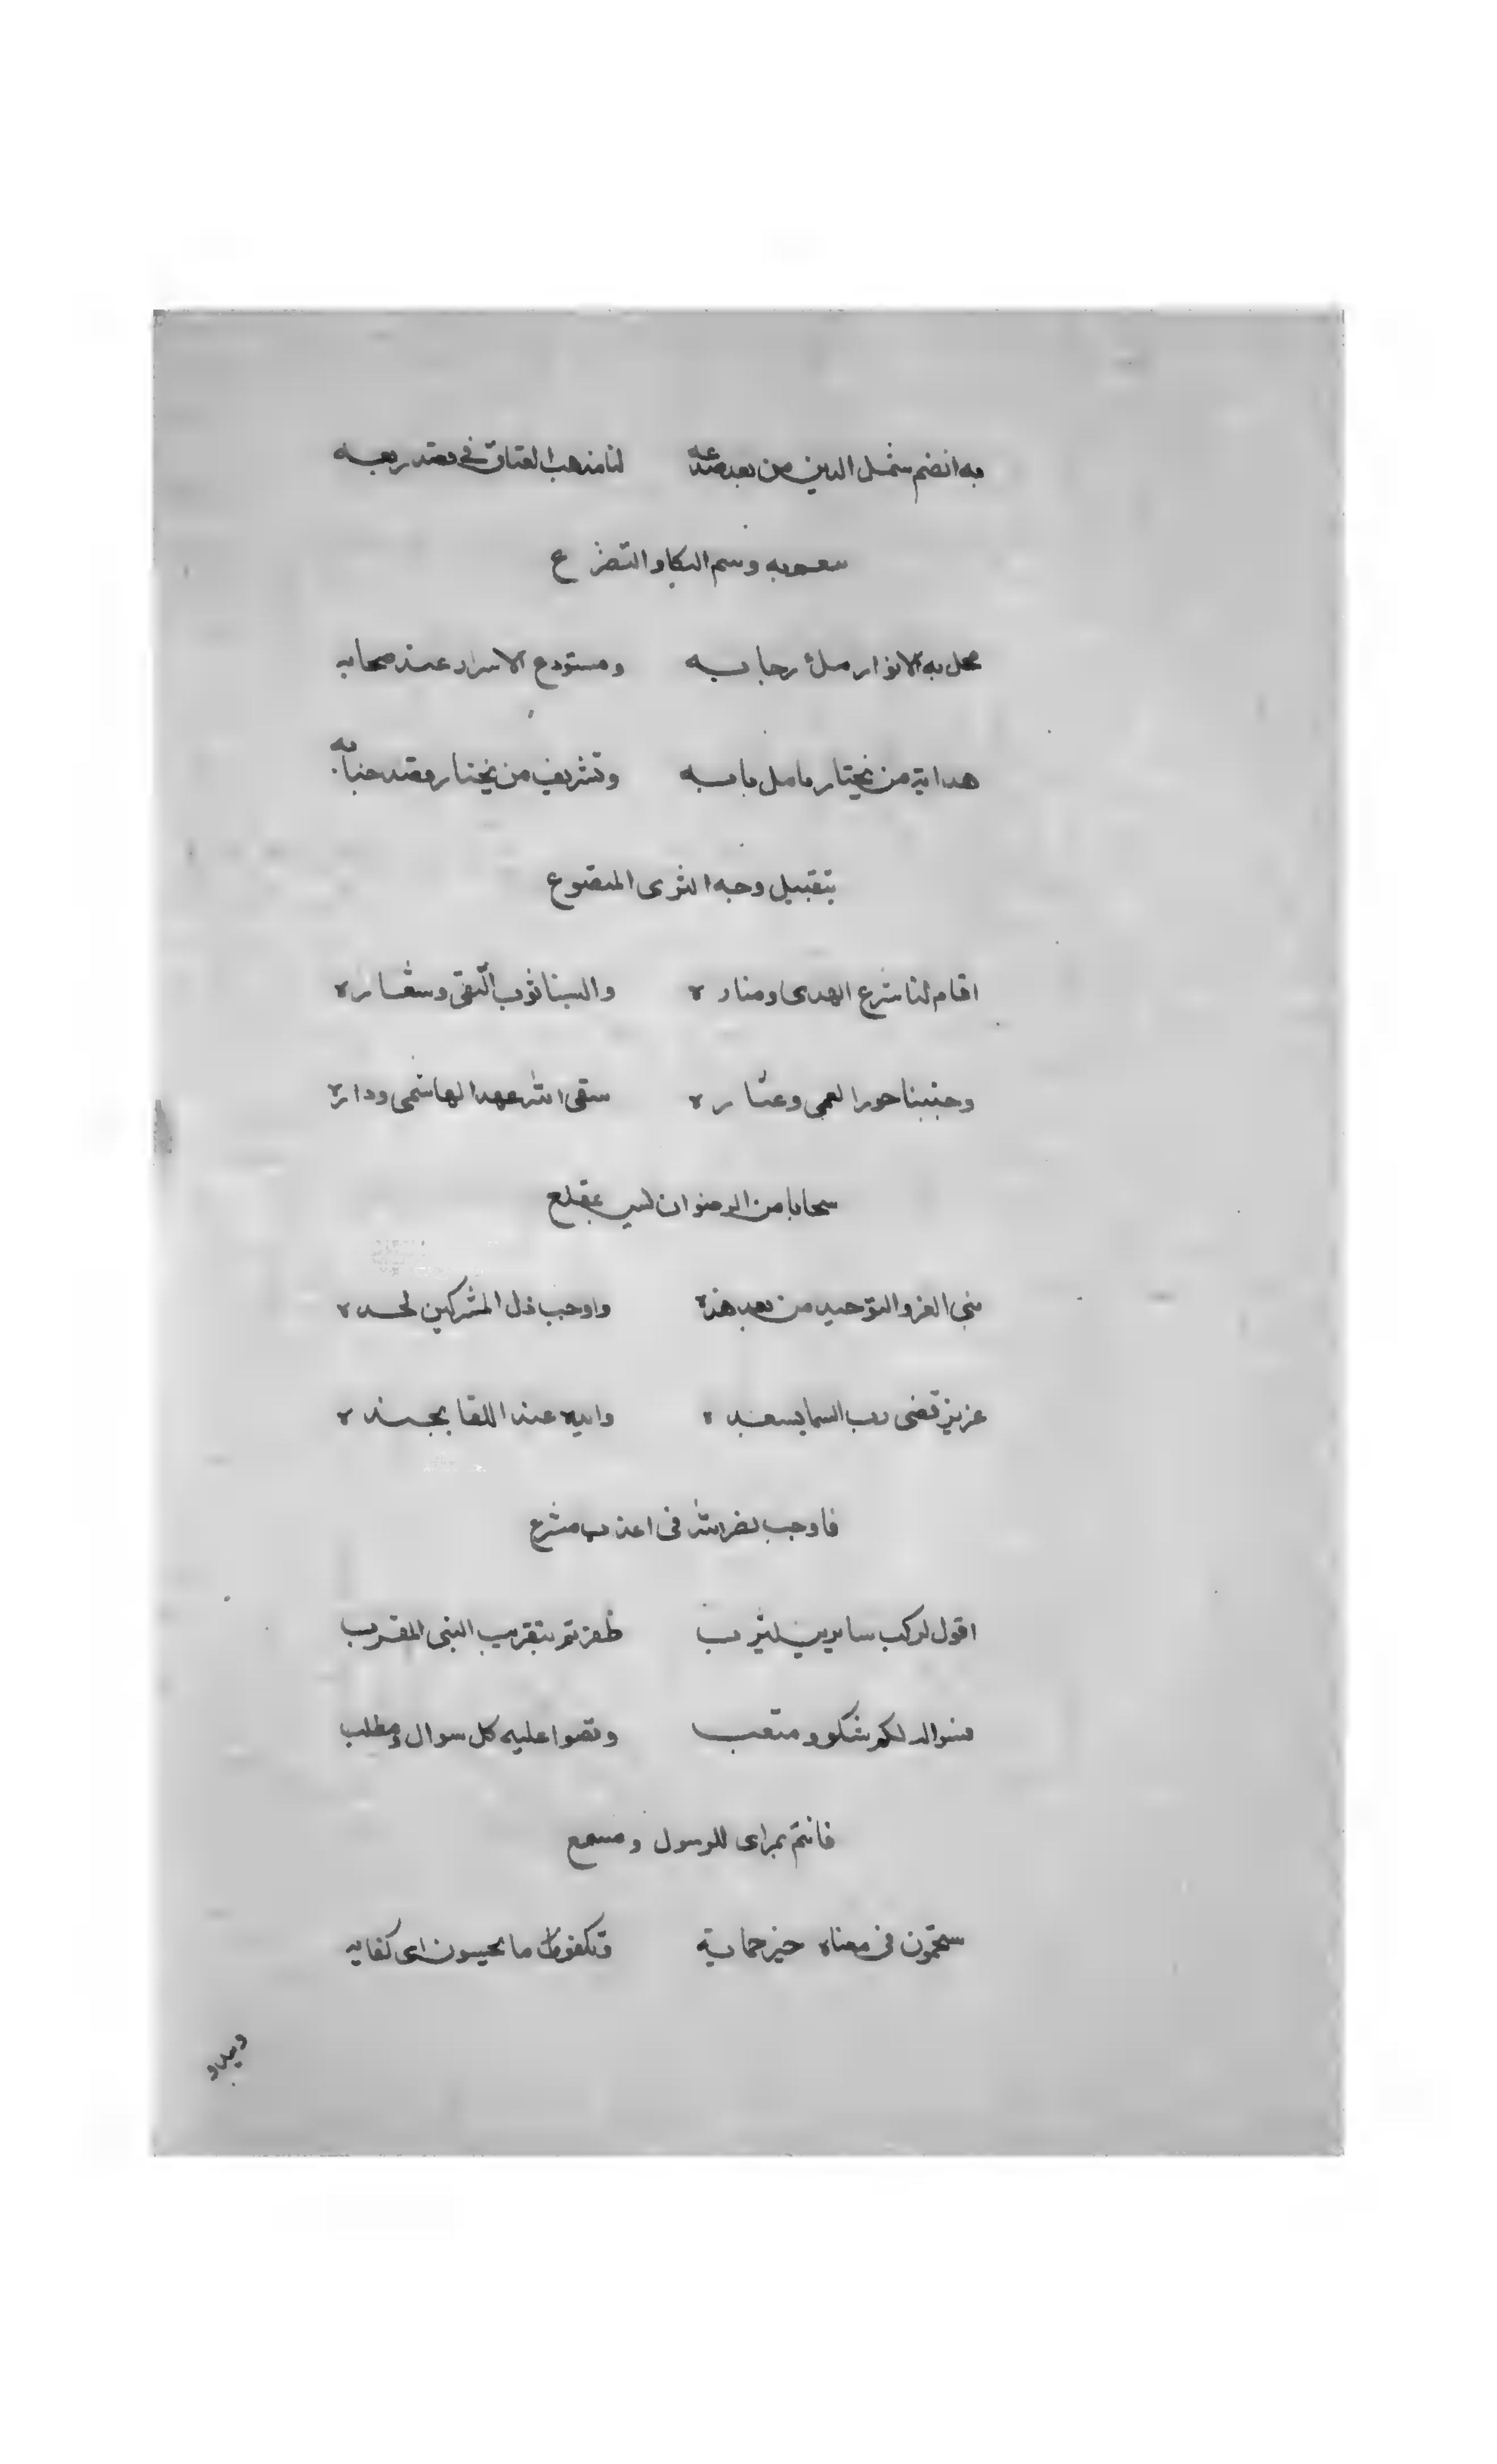 به انضم شمل الدين من بعد صدعه لنا مذهب العتاق في قصد ربعه
وسم البكا و التضرع
محل به الانوار ملأ رحابه ومستودع الاسرار عند صحابه
هداية من يختار مامل بابه وتشريف من يختار قصد جنابه
بتقبيل وجه الثرى المتضوع
اقام لنا شرع الهدى ومناره والبسنا ثوب التقى وشعاره
وجنبنا جور العمى وعثاره سقى الله عهد الهاشمى وداره
سحابا من الرضوان ليس بمقلع
بنى العز والتوحيد من بعد هده واوجب ذل المشركين لحده
عزيز قضى رب السما بسعده وايده عند اللقا بجنده
فاوجب نصر الله فى اعذب مشرع
اقول لركب سايرين ليثرب ظفرتم بتقريب النبى المقرب
شكو و متعب وقصوا عليه كل سوال ومطلب
فانتم بمراى للرسول ومسمع
ستحمون فى مغناه خير حماية وتكفون ما تخشون اى كفايه
ويبدو